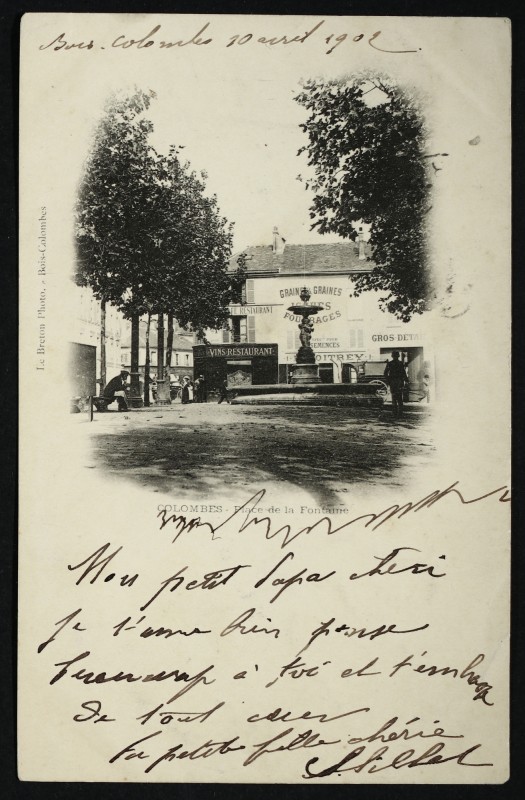 Bois-Colombes 10 avril 1902
Le Breton Photo, - Bois-Colombes
GRAINS & GRAINES
ISSUES
RESTAURANT
FOURRAGES
GROS-DÉTAIL
VINS-RESTAURANT
SEMENCES
COLOMBES - Place de la Fontaine
Mon petit Papa chéri
je t'aime bien pense
beaucoup à toi et t'embrasse
de tout cœur
Ta petite fille chérie